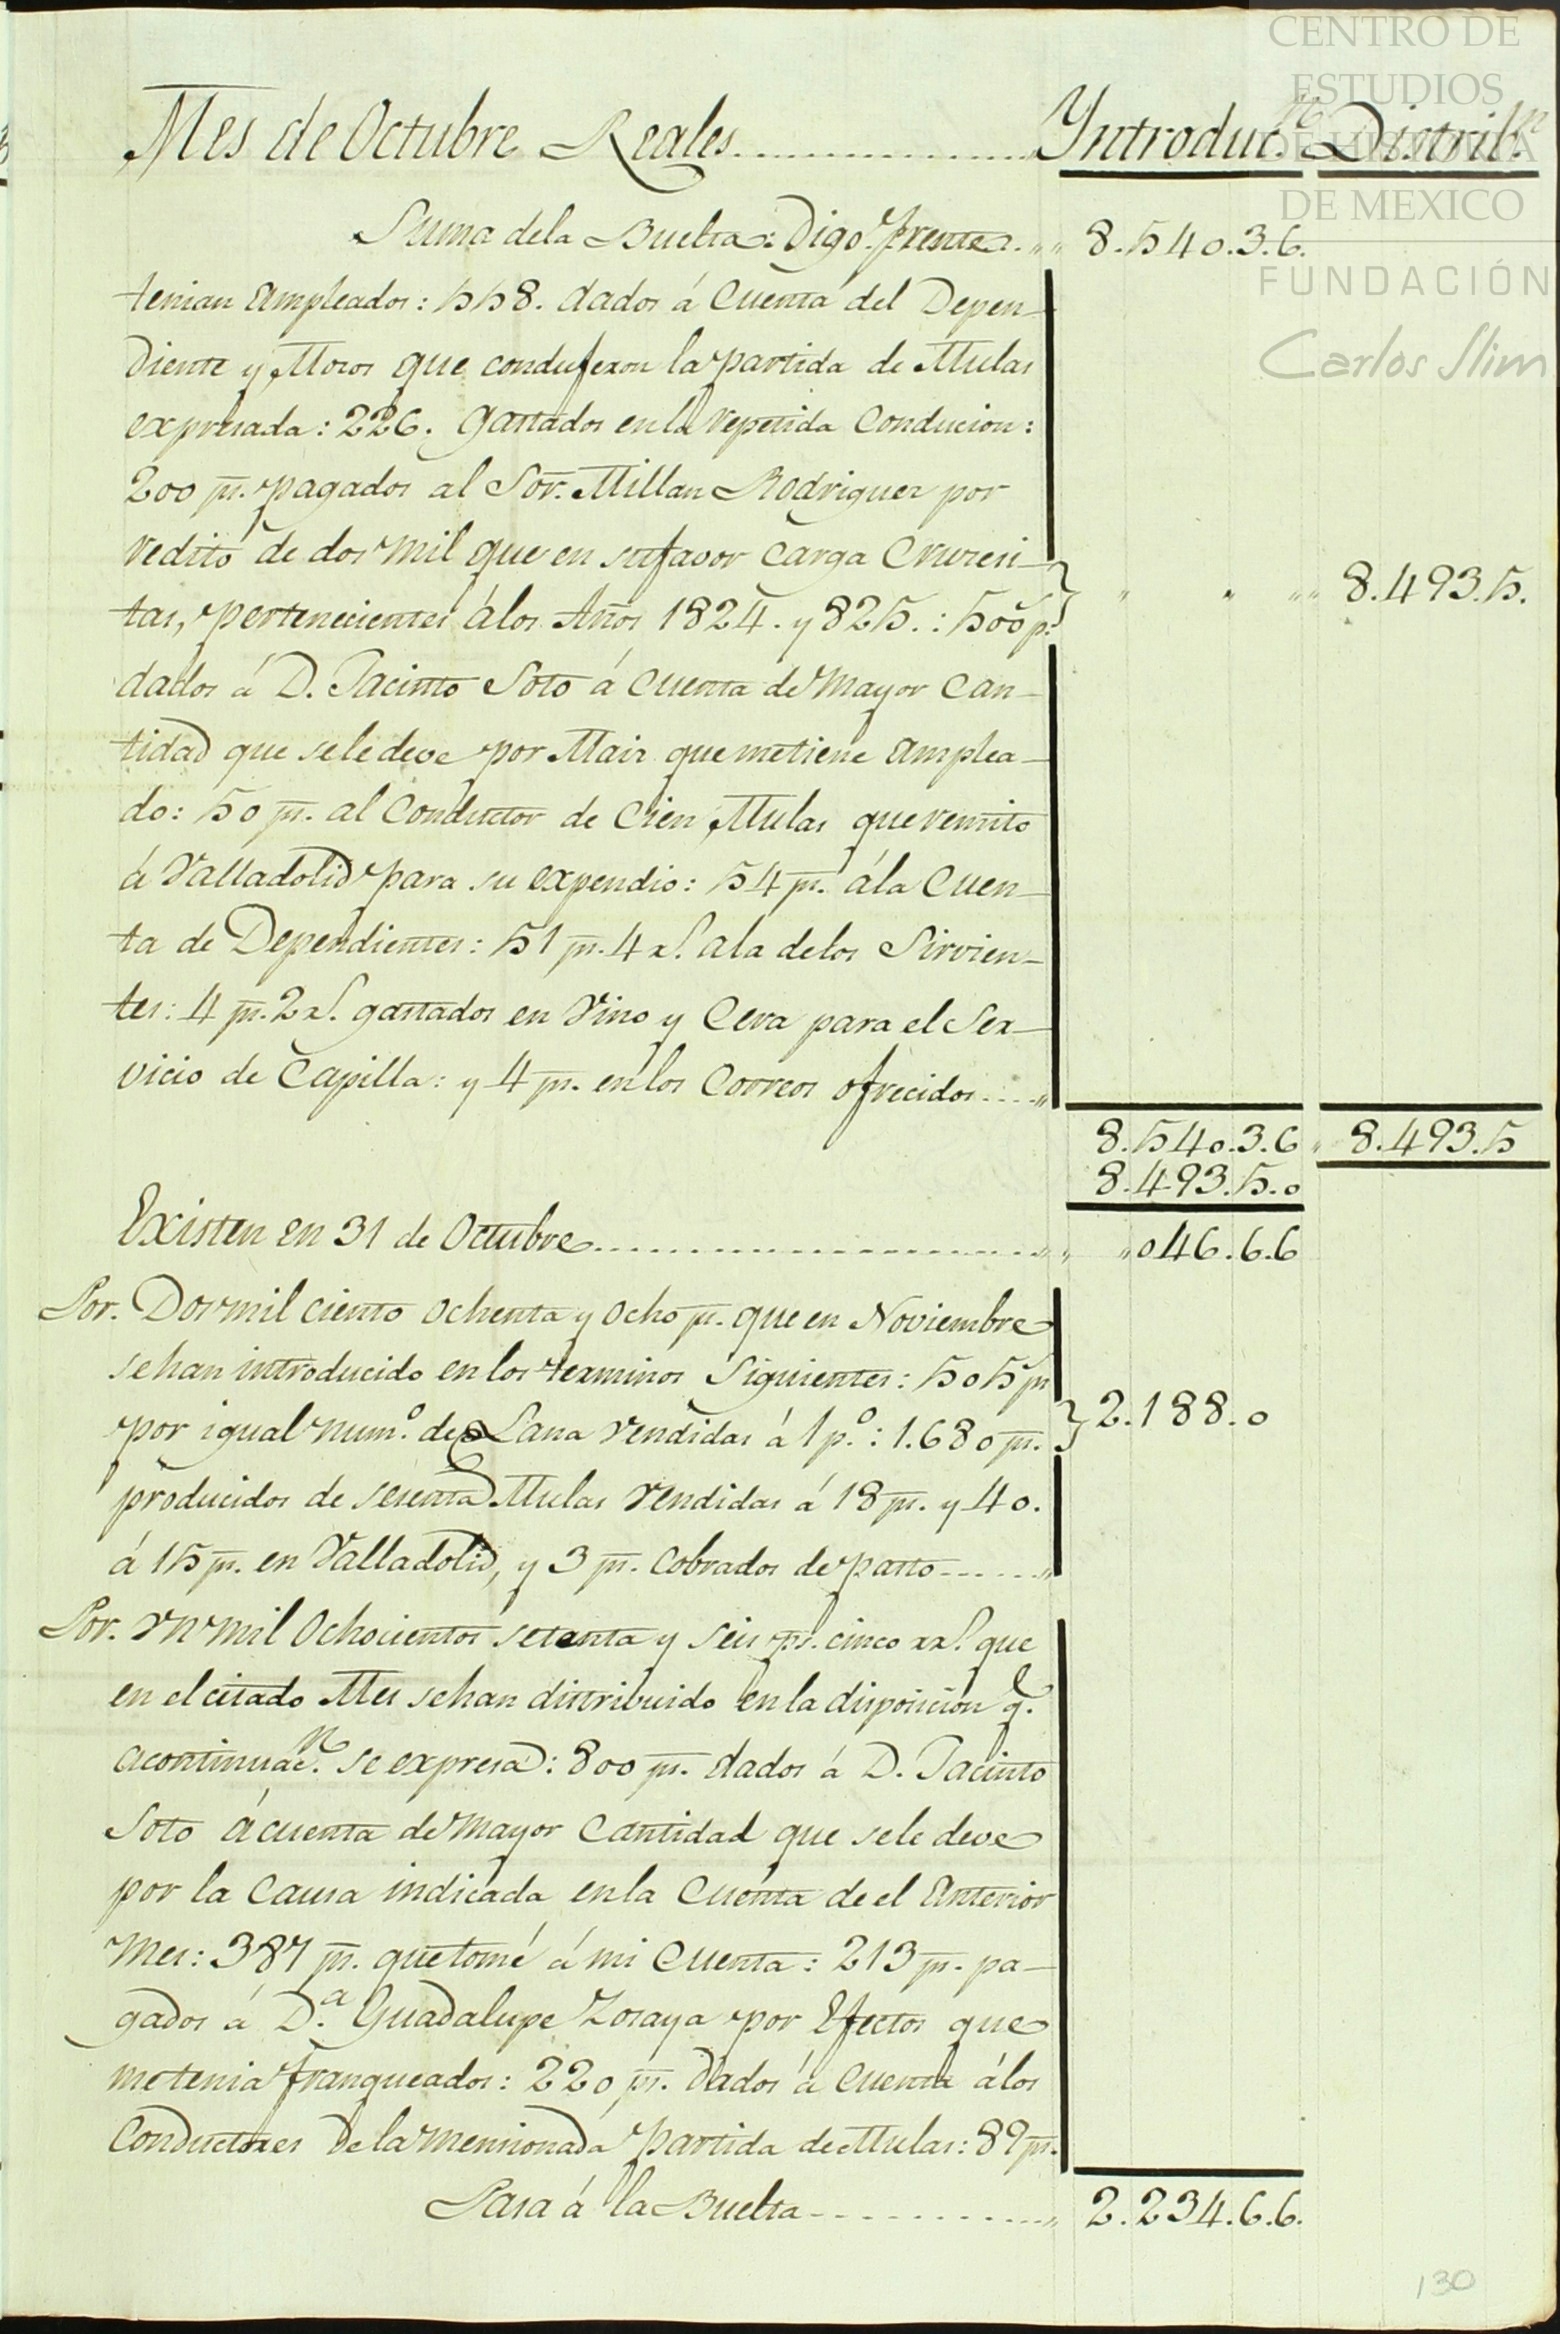 CENTRO DE
ESTUDIOS
DE HISTORIA
DE MEXICO
FUNDACIÓN
Carlos Slim
Mes de Octubre Reales.................. Yntroduc.n Distrib.n
Suma dela Buelta: Digo Frente. „ „ 8.540.3.6.
tenian Ampleados: 558. dados á Cuenta del Depen-
diente y Mozos que condujeron la partida de Mulas
expresada: 226. Gastados en la repetida Conducion:
200 ps. pagados al Sor. Millan Rodriguez por
redito de dos mil que en su favor Carga Cruzesi-
tas, pertenecientes álos Años 1824. y 825.: 500 ps. „ „ „ „ 8.493.5.
dados á D. Jacinto Soto á Cuenta de Mayor Can-
tidad que sele deve por Maiz que metiene Amplea-
do: 50 ps. al Conductor de Cien Mulas que remito
á Valladolid para su expendio: 54 ps. ála Cuen-
ta de Dependientes: 51 ps. 4 rs. ala delos Sirvien-
tes: 4 ps. 2 rs. gastados en Vino y Cera para el Ser-
vicio de Capilla: y 4 ps. en los Correos ofrecidos....„
8.540.3.6 „ 8.493.5
8.493.5.0
Existen en 31 de Octubre.......................... „ „ „ 046.6.6
Por. Dos mil ciento ochenta y ocho ps. que en Noviembre
sehan introducido en los terminos Siguientes: 505 ps
por igual num.o de @ Lana vendidas á 1 p.o: 1.680 ps. 2.188.0
producidos de sesenta Mulas vendidas á 18 ps. y 40.
á 15 ps. en Valladolid, y 3 ps. Cobrados de pasto......„
Por. Vn mil Ochocientos setenta y seis ps. cinco rrs. que
en el citado Mes sehan distribuido en la disposicion q.e
acontinuac.n se expresa: 800 ps. dados á D. Jacinto
Soto á cuenta de Mayor Cantidad que sele deve
por la Causa indicada en la Cuenta de el Anterior
Mes: 387 ps. que tomé á mi Cuenta: 213 ps. pa-
gados á D.a Guadalupe Zosaya por Efectos que
metenia franqueados: 220 ps. Dados á Cuenta álos
Conductores dela mensionada partida de Mulas: 89 ps.
Pasa á la Buelta............„ 2.234.6.6.
130